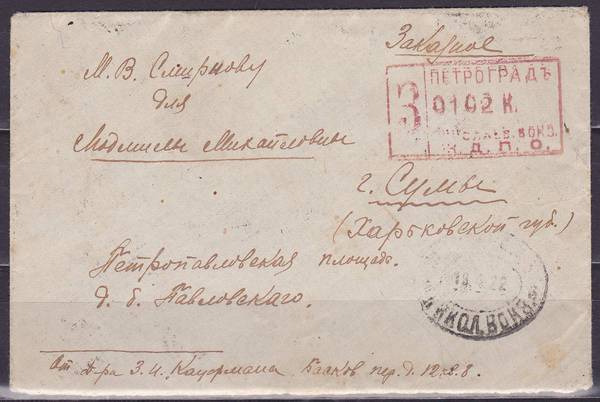 Заказное
М. В. Смирнову
для
Людмилы Михайловны
З
ПЕТРОГРАДЪ
0102 К.
НИКОЛАЕВ. ВОКЗ.
Ж. Д. П. О.
г. Сумы
(Харьковской губ.)
Петропавловская площадь.
д. б. Павловскаго.
НИКОЛ. ВОКЗ.
От д-ра З. И. пер. д. 12. 8.